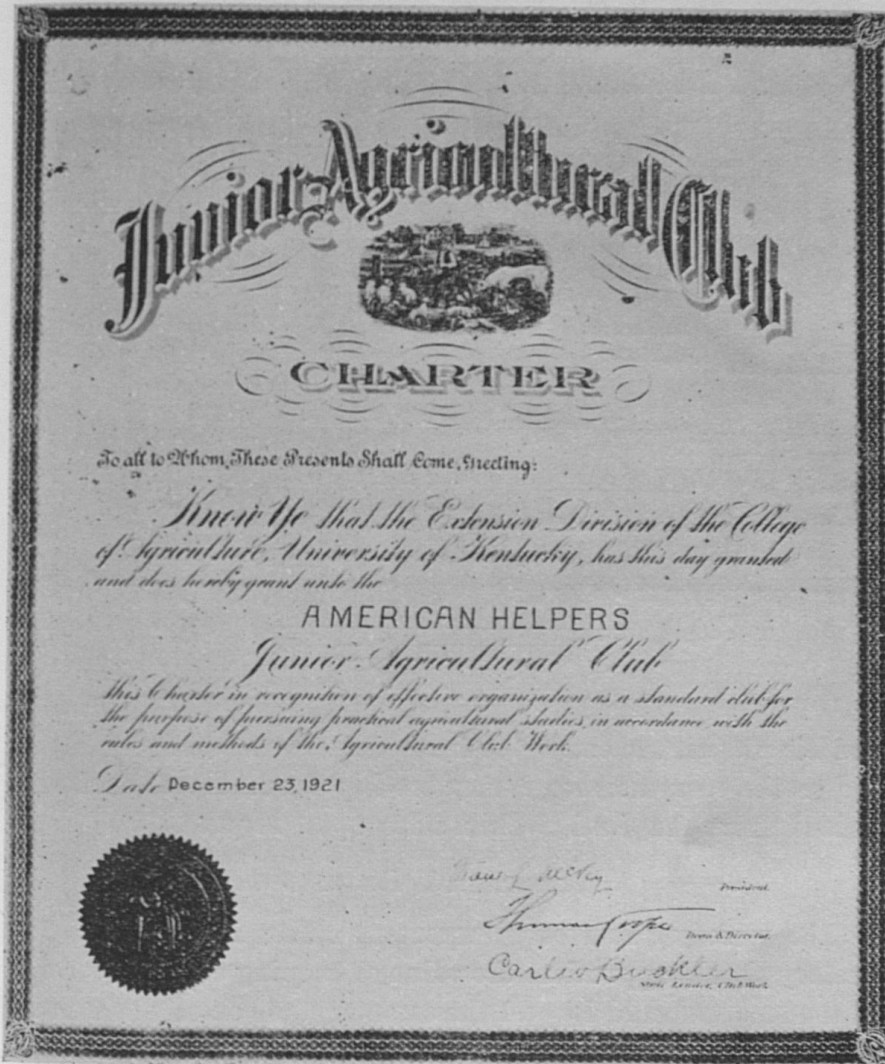 Junior Agricultural Club
CHARTER
To all to Whom These Presents Shall Come, Greeting:
Know Ye that the Extension Division of the College
of Agriculture, University of Kentucky, has this day granted
and does hereby grant unto the
AMERICAN HELPERS
Junior Agricultural Club
this Charter in recognition of effective organization as a standard club for
the purpose of pursuing practical agricultural studies, in accordance with the
rules and methods of the Agricultural Club Work.
Date December 23, 1921
President.
Thomas Cooper
Dean & Director.
Buckler
State Leader, Club Work